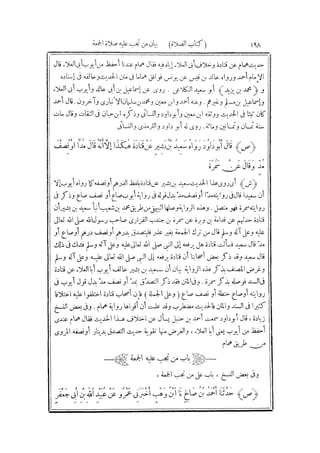 ١٩٨ (كتاب الصلاة) بيان من تجب عليه صلاة الجمعة
حديث همام عن قتادة وخلاف أبى العلاء إياه فيه فقال همام عندنا أحفظ من أيوب أبى العلاء. قال
الإمام أحمد ورواه خالد بن قيس عن يونس فوافق هماما فى متن الحديث وخالفه فى إسناده
و ﴿محمد بن يزيد﴾ أبو سعيد الكلاعى. روى عن إسماعيل بن أبى خالد وأيوب أبى العلاء
وإسماعيل بن مسلم وغيرهم. وعنه أحمد وابن معين ومحمد بن سليمان الأنبارى وآخرون. قال أحمد
كان ثبتا فى الحديث ووثقه ابن معين وأبو داود والنسائى وذكره ابن حبان فى الثقات وقال مات
سنة ثمان وثمانين ومائة. روى له أبو داود والترمذى والنسائى
﴿ص﴾ قَالَ أَبُو دَاوُدَ رَوَاهُ سَعِيدُ بْنُ بَشِيرٍ عَنْ قَتَادَةَ هَكَذَا إِلَّا أَنَّهُ قَالَ مُدًّا أَوْ نِصْفَ
مُدٍّ وَقَالَ عَنْ سَمُرَةَ
﴿ش﴾ أى روى هذا الحديث سعيد بن بشير عن قتادة بلفظ الدرهم أو نصفه كما رواه أيوب إلا
أن سعيدا قال فى روايته مدا أو نصف مد بدل قوله فى رواية أيوب صاع أو نصف صاع وذكر فى
روايته سمرة فهو متصل. وهذه الرواية وصلها البيهقى من طريق محمد بن شعيب أنبأ سعيد بن بشير أن
قتادة حدثهم عن قدامة بن وبرة عن سمرة بن جندب الفزارى صاحب رسول الله صلى الله تعالى
عليه وعلى آله وسلم قال من ترك الجمعة بغير عذر فليتصدق بدرهم أو نصف درهم أو صاع أو
مد قال سعيد فسألت قتادة هل يرفعه إلى النبى صلى الله تعالى عليه وعلى آله وسلم فشك فى ذلك
قال سعيد وقد ذكر بعض أصحابنا أن قتادة يرفعه إلى النبى صلى الله تعالى عليه وعلى آله وسلم
وغرض المصنف بذكر هذه الرواية بيان أن سعيد بن بشير خالف أيوب أبا العلاء عن قتادة
فى السند فوصله بذكر سمرة. وفى المتن فقد ذكر التصدق بمد أو نصف مد بدل قول أيوب فى
روايته أو صاع حنطة أو نصف صاع ﴿وعلى الجملة﴾ فإن أصحاب قتادة اختلفوا عليه اختلافا
كثيرا فى السند والمتن فالحديث مضطرب وقد علمت أن أقواها رواية همام. وفى بعض النسخ
زيادة، قال أبو داود سمعت أحمد بن حنبل يسأل عن اختلاف هذا الحديث فقال همام عندى
أحفظ من أيوب يعنى أبا العلاء، والغرض منها تقوية حديث التصدق بدينار أو نصفه المروى
من طريق همام
باب من تجب عليه الجمعة
وفى بعض النسخ، باب على من تجب الجمعة،
﴿ص﴾ حَدَّثَنَا أَحْمَدُ بْنُ صَالِحٍ نَا ابْنُ وَهْبٍ أَخْبَرَنِى عَمْرٌو عَنْ عُبَيْدِ اللهِ بْنِ أَبِى جَعْفَرٍ